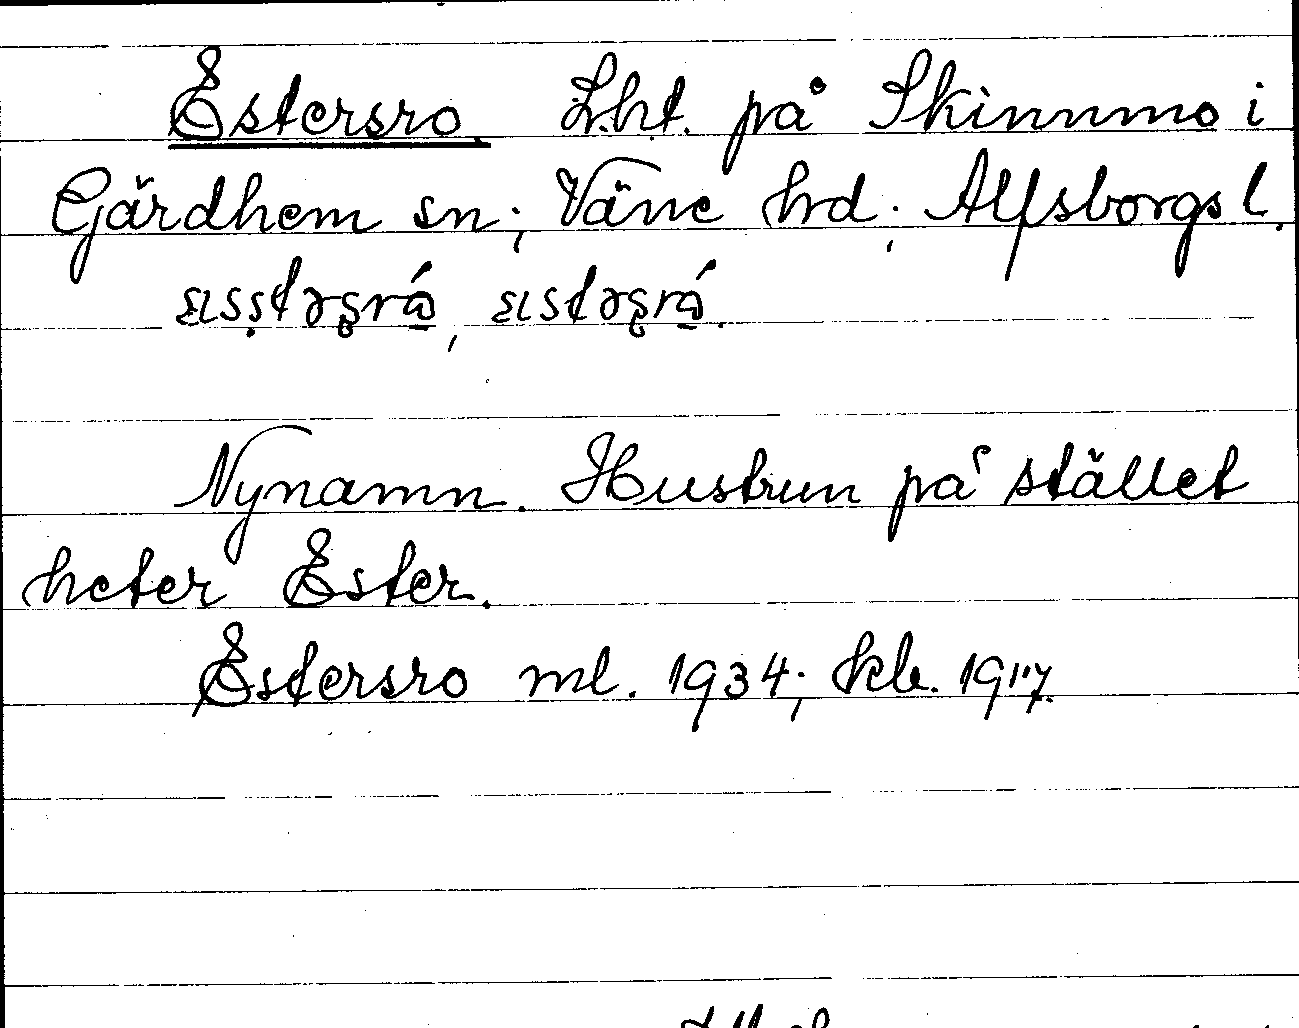 Estersro. L.ht. på Skinnmo i
Gärdhem sn; Väne hrd; Alfsborgs l.
Nynamn. Hustrun på stället
heter Ester.
Estersro ml. 1934; kb. 1917.